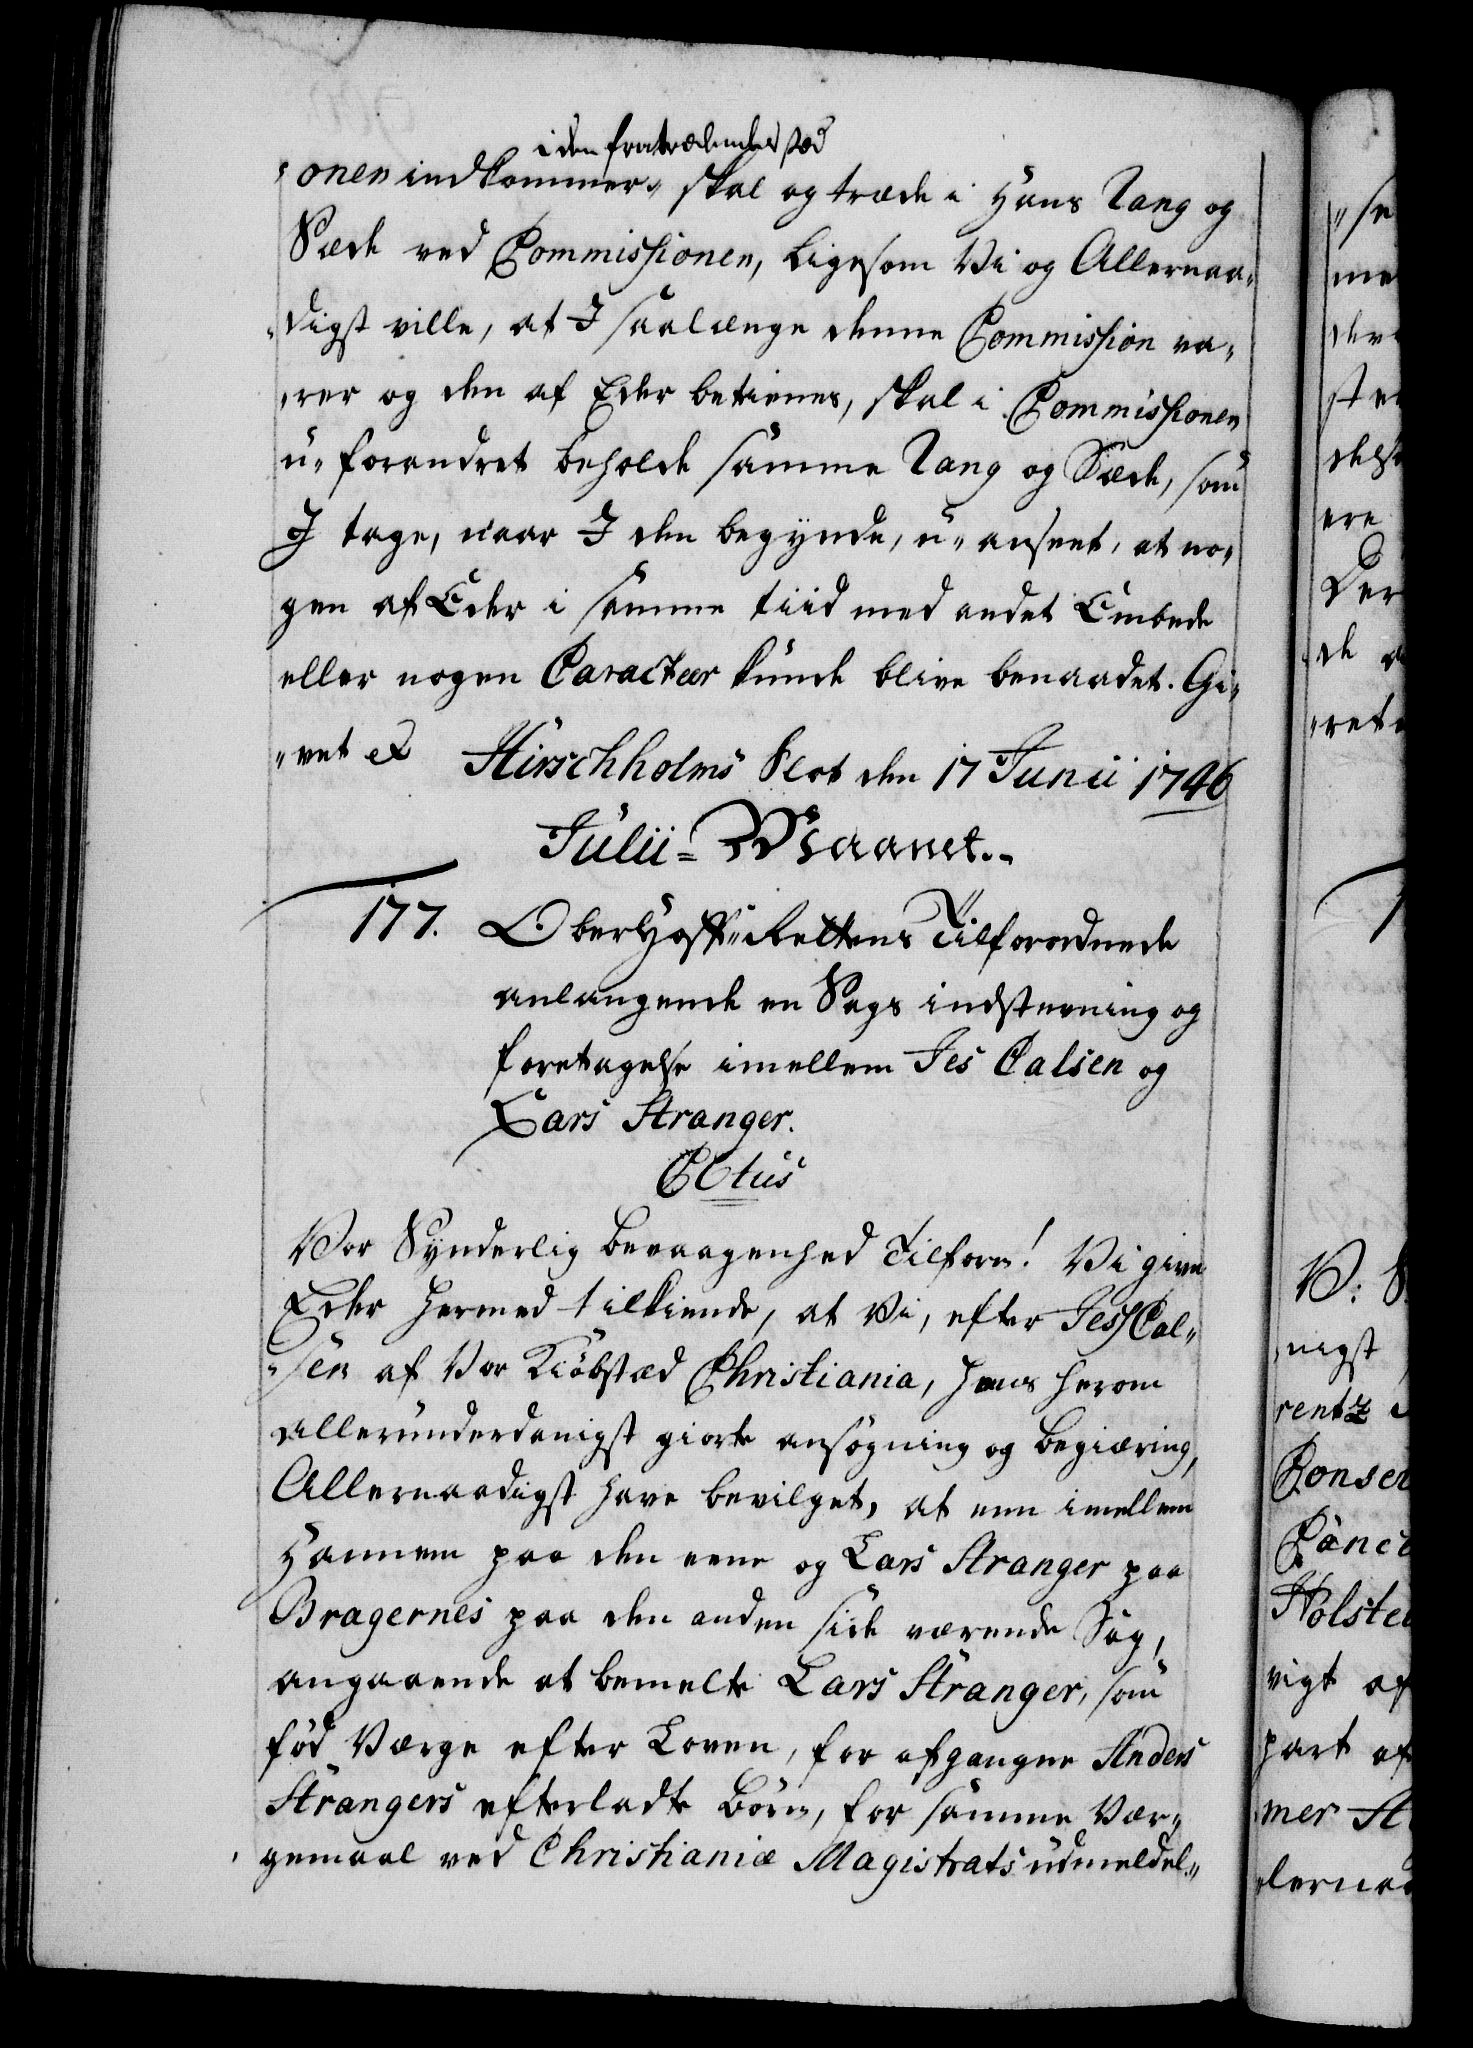 i den fratrædendes stæd
"onen indkommer, skal og træde i Hans Rang og
Sæde ved Commissionen, ligesom Vi og Allernaa-
"digst ville, at I saalænge denne Commission va-
"rer og den af Eder betienes, skal i Commissionen
u-forandret beholde samme Rang og Sæde, som
I tage, naar I den begynde, u-anseet, at no-
gen af Eder i samme tiid med andet Embede
eller nogen Caracteer kunde blive benaadet. Gi-
"vet &
Hirschholms Slot den 17 Junii 1746
Julii-Maanet.
177. OberHoff-Rettens Tilforordnede
anlangende en Sags indstevning og
foretagelse imellem Jes Calsen og
Lars Stranger.
C 6tus
Vor Synderlig bevaagenhed Tilforn! Vi give
Eder hermed tilkiende, at Vi, efter Jes Cal-
"sen af Vor Kiöbstæd Christiania, hans herom
allerunderdanigst giorte ansögning og begiæring,
Allernaadigst have bevilget, at een imellem
Hannem paa den eene og Lars Stranger paa
Bragernes paa den anden side værende Sag,
angaaende at bemelte Lars Stranger, som
föd Værge efter Loven, for afgangne Anders
Strangers efterladte Börn, for samme Vær-
gemaal ved Christianiæ Magistrats udmeldel-
"se
me
rete
V: S
nigst
rentz
Holste
vigt af
part af
mer St